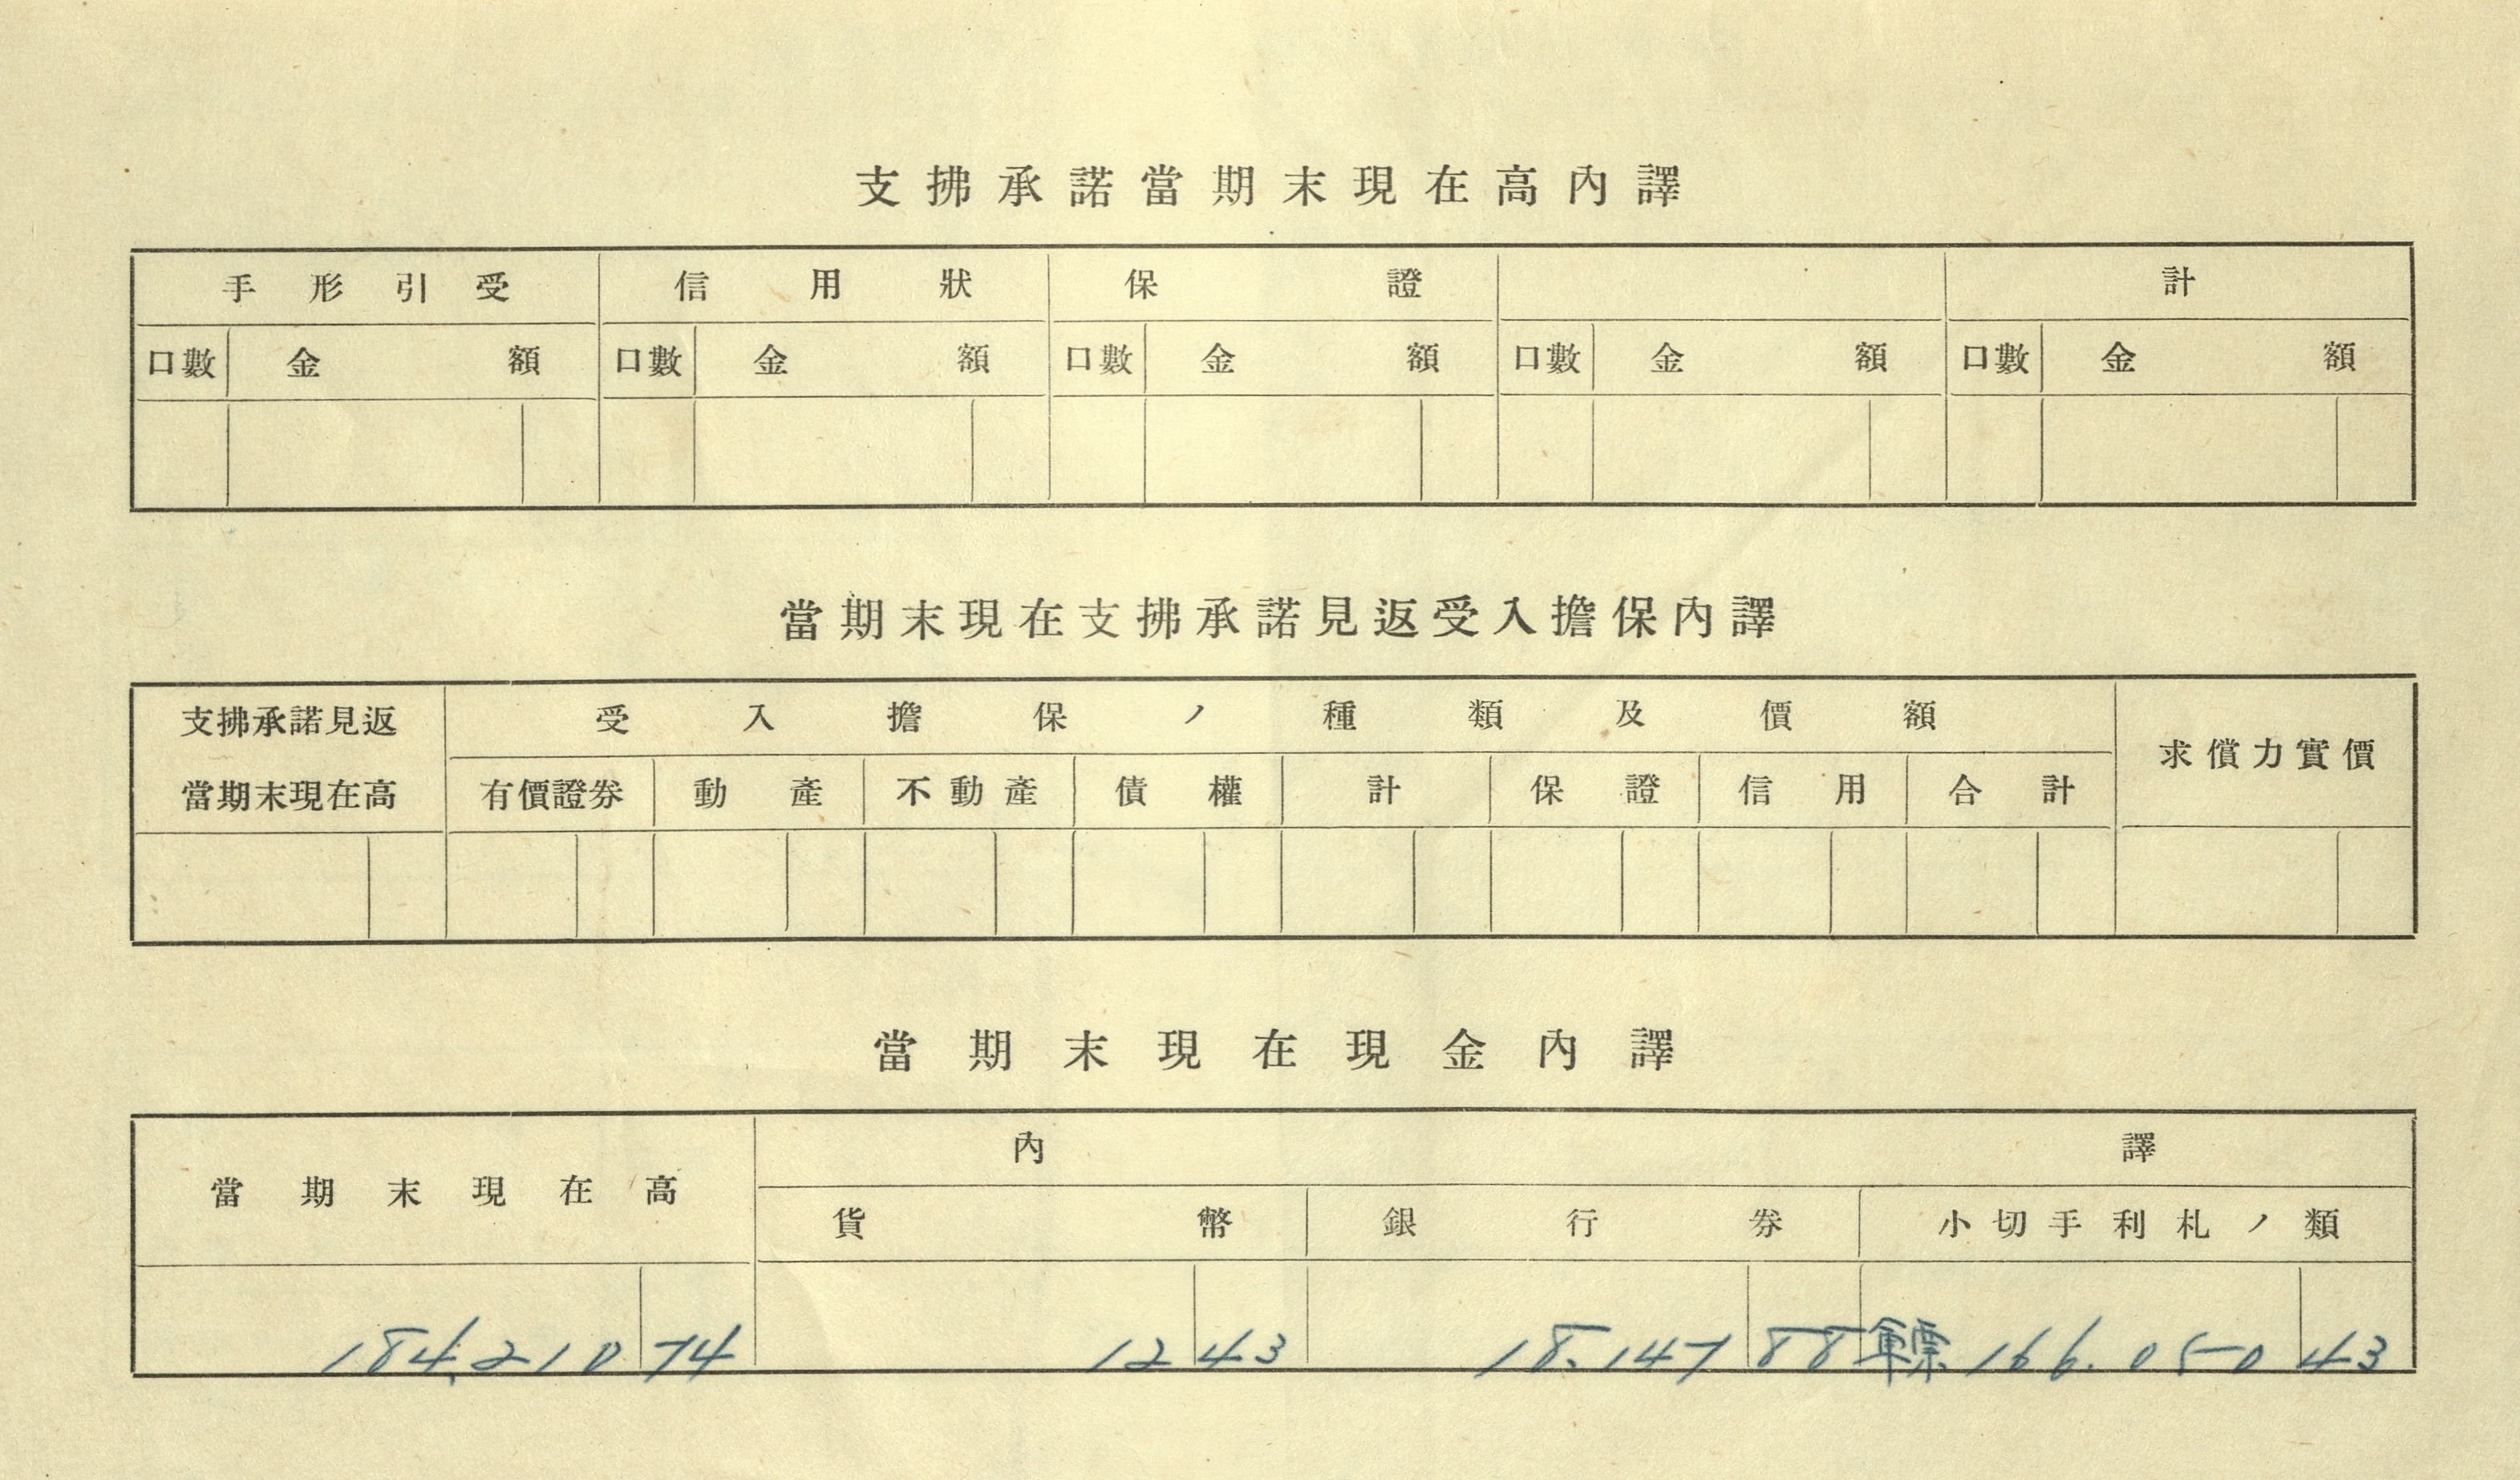 支拂承諾當期末現在高內譯
手形引受 信用狀 保證 計
口數 金額 口數 金額 口數 金額 口數 金額 口數 金額
當期末現在支拂承諾見返受入擔保內譯
支拂承諾見返 受入擔保ノ種類及價額
求償力實價
當期末現在高 有價證券 動產 不動產 債權 計 保證 信用 合計
當期末現在現金內譯
內譯
當期末現在高
貨幣 銀行券 小切手利札ノ類
184,210 74 12 43 18.147 88 軍票 166.050 43